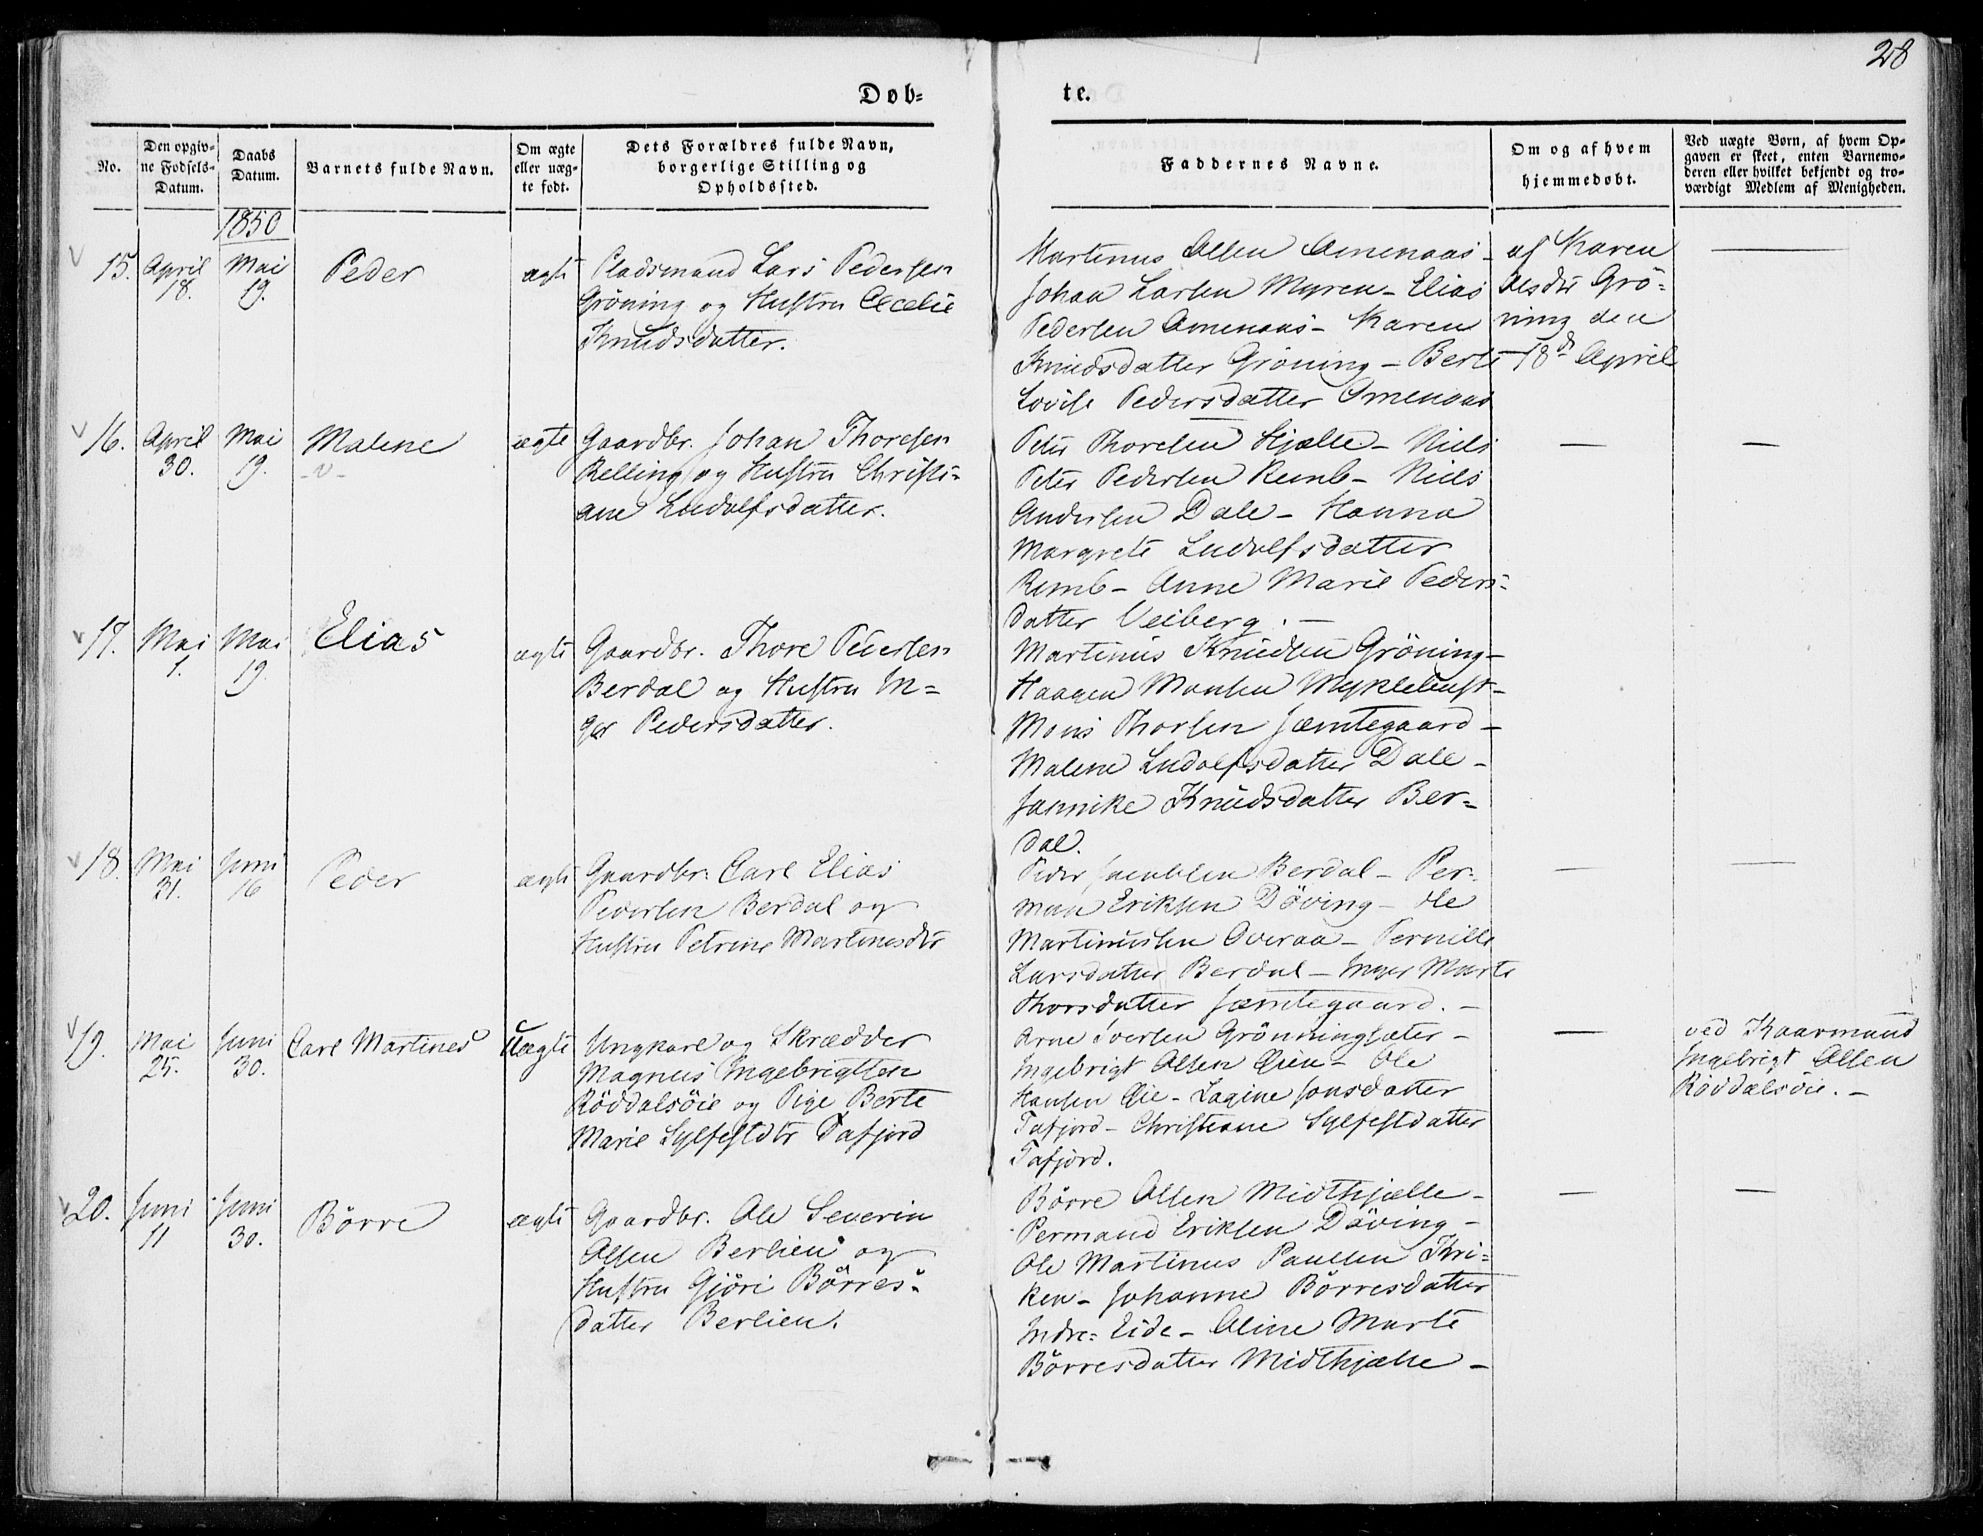 28
Døb=
te.
No.
Den opgiv-
ne Fødsels-
Datum.
Daabs
Datum.
Barnets fulde Navn.
Om ægte
eller uæg-
te født.
Dets Forældres fulde Navn,
borgerlige Stilling og
Opholdssted.
Faddernes Navne.
Om og af hvem
hjemmedøbt.
Ved uægte Børn, af hvem Op-
gaven er skeet, enten Barnemo-
deren eller hvilket bekjendt og tro-
værdigt Medlem af Menigheden.
1850
15.
April
18.
Mai
19.
Peder
ægte
Pladsmand Lars Pedersen
Gröning og Hustru Cecelie
Knudsdatter.
Martinus Olsen Omenaas -
Johan Larsen Myren - Elias
Pedersen Omenaas - Karen
Knudsdatter Gröning - Berte
Lovise Pedersdatter Omenaas
af Karen
Grö-
ning den
18de April
16.
April
30.
Mai
19.
Malene
ægte
Gaardbr. Johan Thoresen
Relling og Hustru Christi=
ane Ludolfsdatter.
Peter Thoresen Hjelle - Niels
Peter Pedersen Remb - Niels
Andersen Dale - Hanna
Margrete Ludolfsdatter
Remb - Anne Marie Peders=
datter Veiberg. -
17.
Mai
1.
Mai
19.
Elias
ægte
Gaardbr. Thore Pedersen
Berdal og Hustru In=
ger Pedersdatter.
Martinus Knudsen Gröning -
Haagen Monsen Myklebust -
Mons Thorsen Jemtegaard -
Malene Ludolfsdatter Dale -
Jannike Knudsdatter Ber=
dal.
18.
Mai
31.
Juni
16
Peder
ægte
Gaardbr. Carl Elias
Pedersen Berdal og
Hustru Petrine Martinusdtr
Peder Jacobsen Berdal - Per-
man Eriksen Döving - Ole
Martinussen Overaa - Pernille
Larsdatter Berdal - Inger Marte
Thorsdatter Jemtegaard. -
19.
Mai
25.
Juni
30.
Carl Martines
Uægte
Ungkarl og Skrædder
Magnus Ingebrigtsen
Röddalsöie og Pige Berte
Marie Sylfestdtr Tafjord
Arne Iversen Grönningsæter -
Ingebrigt Olsen Öien - Ole
Hansen Öie - Lagine Jonsdatter
Tafjord - Christiane Sylfestdatter
Tafjord.
ved Kaarmand
Ingebrigt Olsen
Röddalsöie. -
20.
Juni
11
Juni
30.
Börre
ægte
Gaardbr. Ole Severin
Olsen Berlien og
Hustru Gjöri Börres=
datter Berlien.
Börre Olsen Midthjelle -
Permand Eriksen Döving -
Ole Martinus Paulsen Kri=
ken - Johanne Börresdatter
Indre=Eide - Oline Marte
Börresdatter Midthjelle -